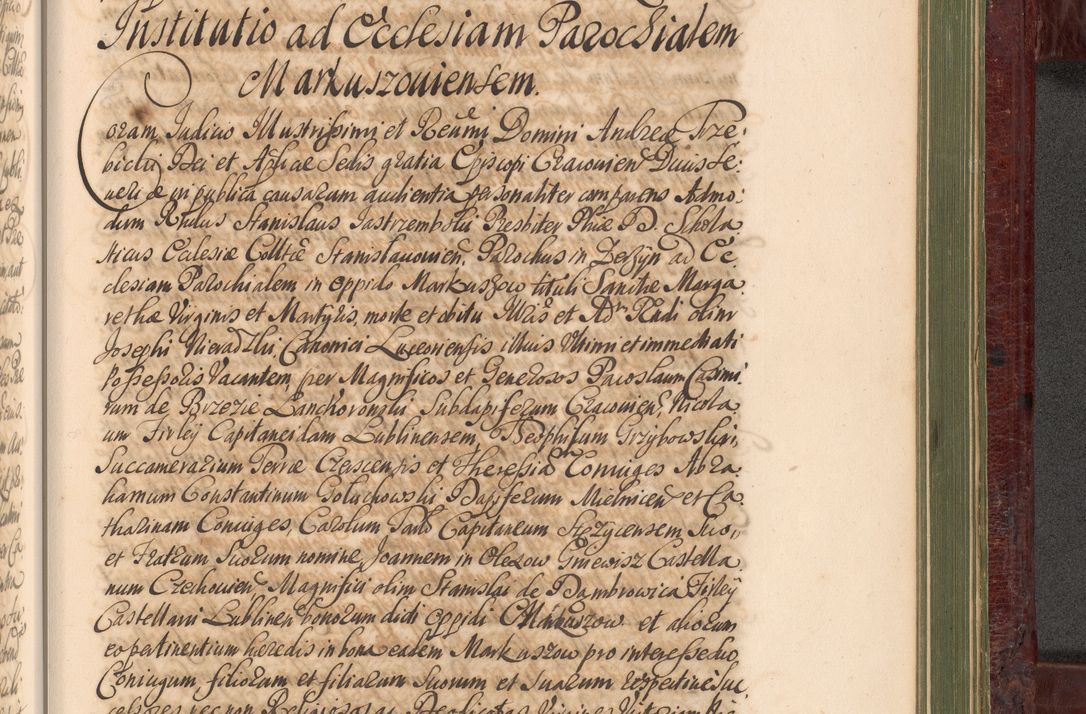 Institutio ad Ecclesiam Parochialem
Markuszouiensem.
Coram Judicio Illustrissimi et Reũmi Domini Andreæ Trze:
bicki Dei et Aplicae Sedis gratia Eppiscopi Cracouien̄ Ducis Se:
ueriæ in publica causarum audientia personaliter comparens Admo:
dum Rñdus Stanislaus Jastrzembski Presbiter Phiæ D. Schola
sticus Ecclesiæ Colltæ Stanislauouien, Parochus in ad Ec,
clesiam Parochialem in oppido Markuszow tituli Sanctæ Marga
rethæ Virginis et Martyris, morte et obitu Illris et Adm Rndi olim
Josephi Nieradzki, Canonici Luceoriensis illius Vltimi et immediati
Possessoris Vacantem, per Magnificos et Generosos Pacoslaum Casimi
rum de Brzezie Lanckoronski Subdapiferum Cracouien, Nicola
um Firley Capitaneidam Lublinensem, Theophilum Grzybowski,
Succamerarium Terræ Czerscensis et Theressia Coniuges Abra
hamum Constantinum Goluchowski Dapiferum Mielnicen et Ca
tharinam Coniuges, Carolum Capitaneum suo
et Fratrum Suorum nomine, Joannem in Olexow Gniewosz Castella
num Czechouien Magnifici olim Stanislai de Dambrowica Firley
Castellani Lublinen bonorum dicti oppidi Markuszow et aliorum
eo pertinentium heredis in bona eadem Markuszow pro interesse suo
Coniugum filiorum et filiarum Suorum et Suarum respectiue Suc
cessores nec non Religiosos